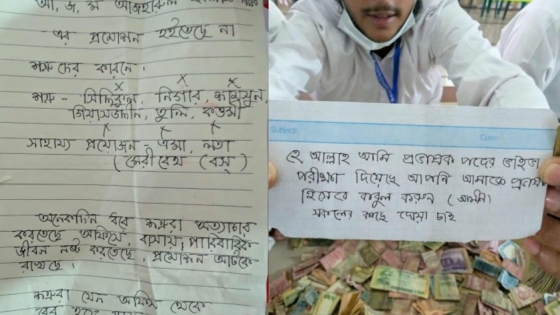 আ, জ, ম আজহারুল
এর প্রমোশন হইতেছে না
শত্রুদের কারনে।
শত্রু - সিদ্দিকুল, নিগার, হুমায়ুন,
গিয়াসউদ্দিন, তুলি, কওমী
সাহায্য প্রয়োজন এশা, লতা
অনেকদিন ধরে শত্রুরা অত্যাচার
করতেছে অফিসে, বাসায়, পারিবারিক
জীবন নষ্ট করতেছে, প্রমোশন আটকে
রাখছে।
শত্রুরা যেন অফিস থেকে
Subject:
Date:
হে আল্লাহ আমি প্রভাষক পদের ভাইভা
পরীক্ষা দিয়েছি আপনি আমাকে প্রভাষক
হিসেবে কবুল করুন (আমিন)
সকলের কাছে দোয়া চাই